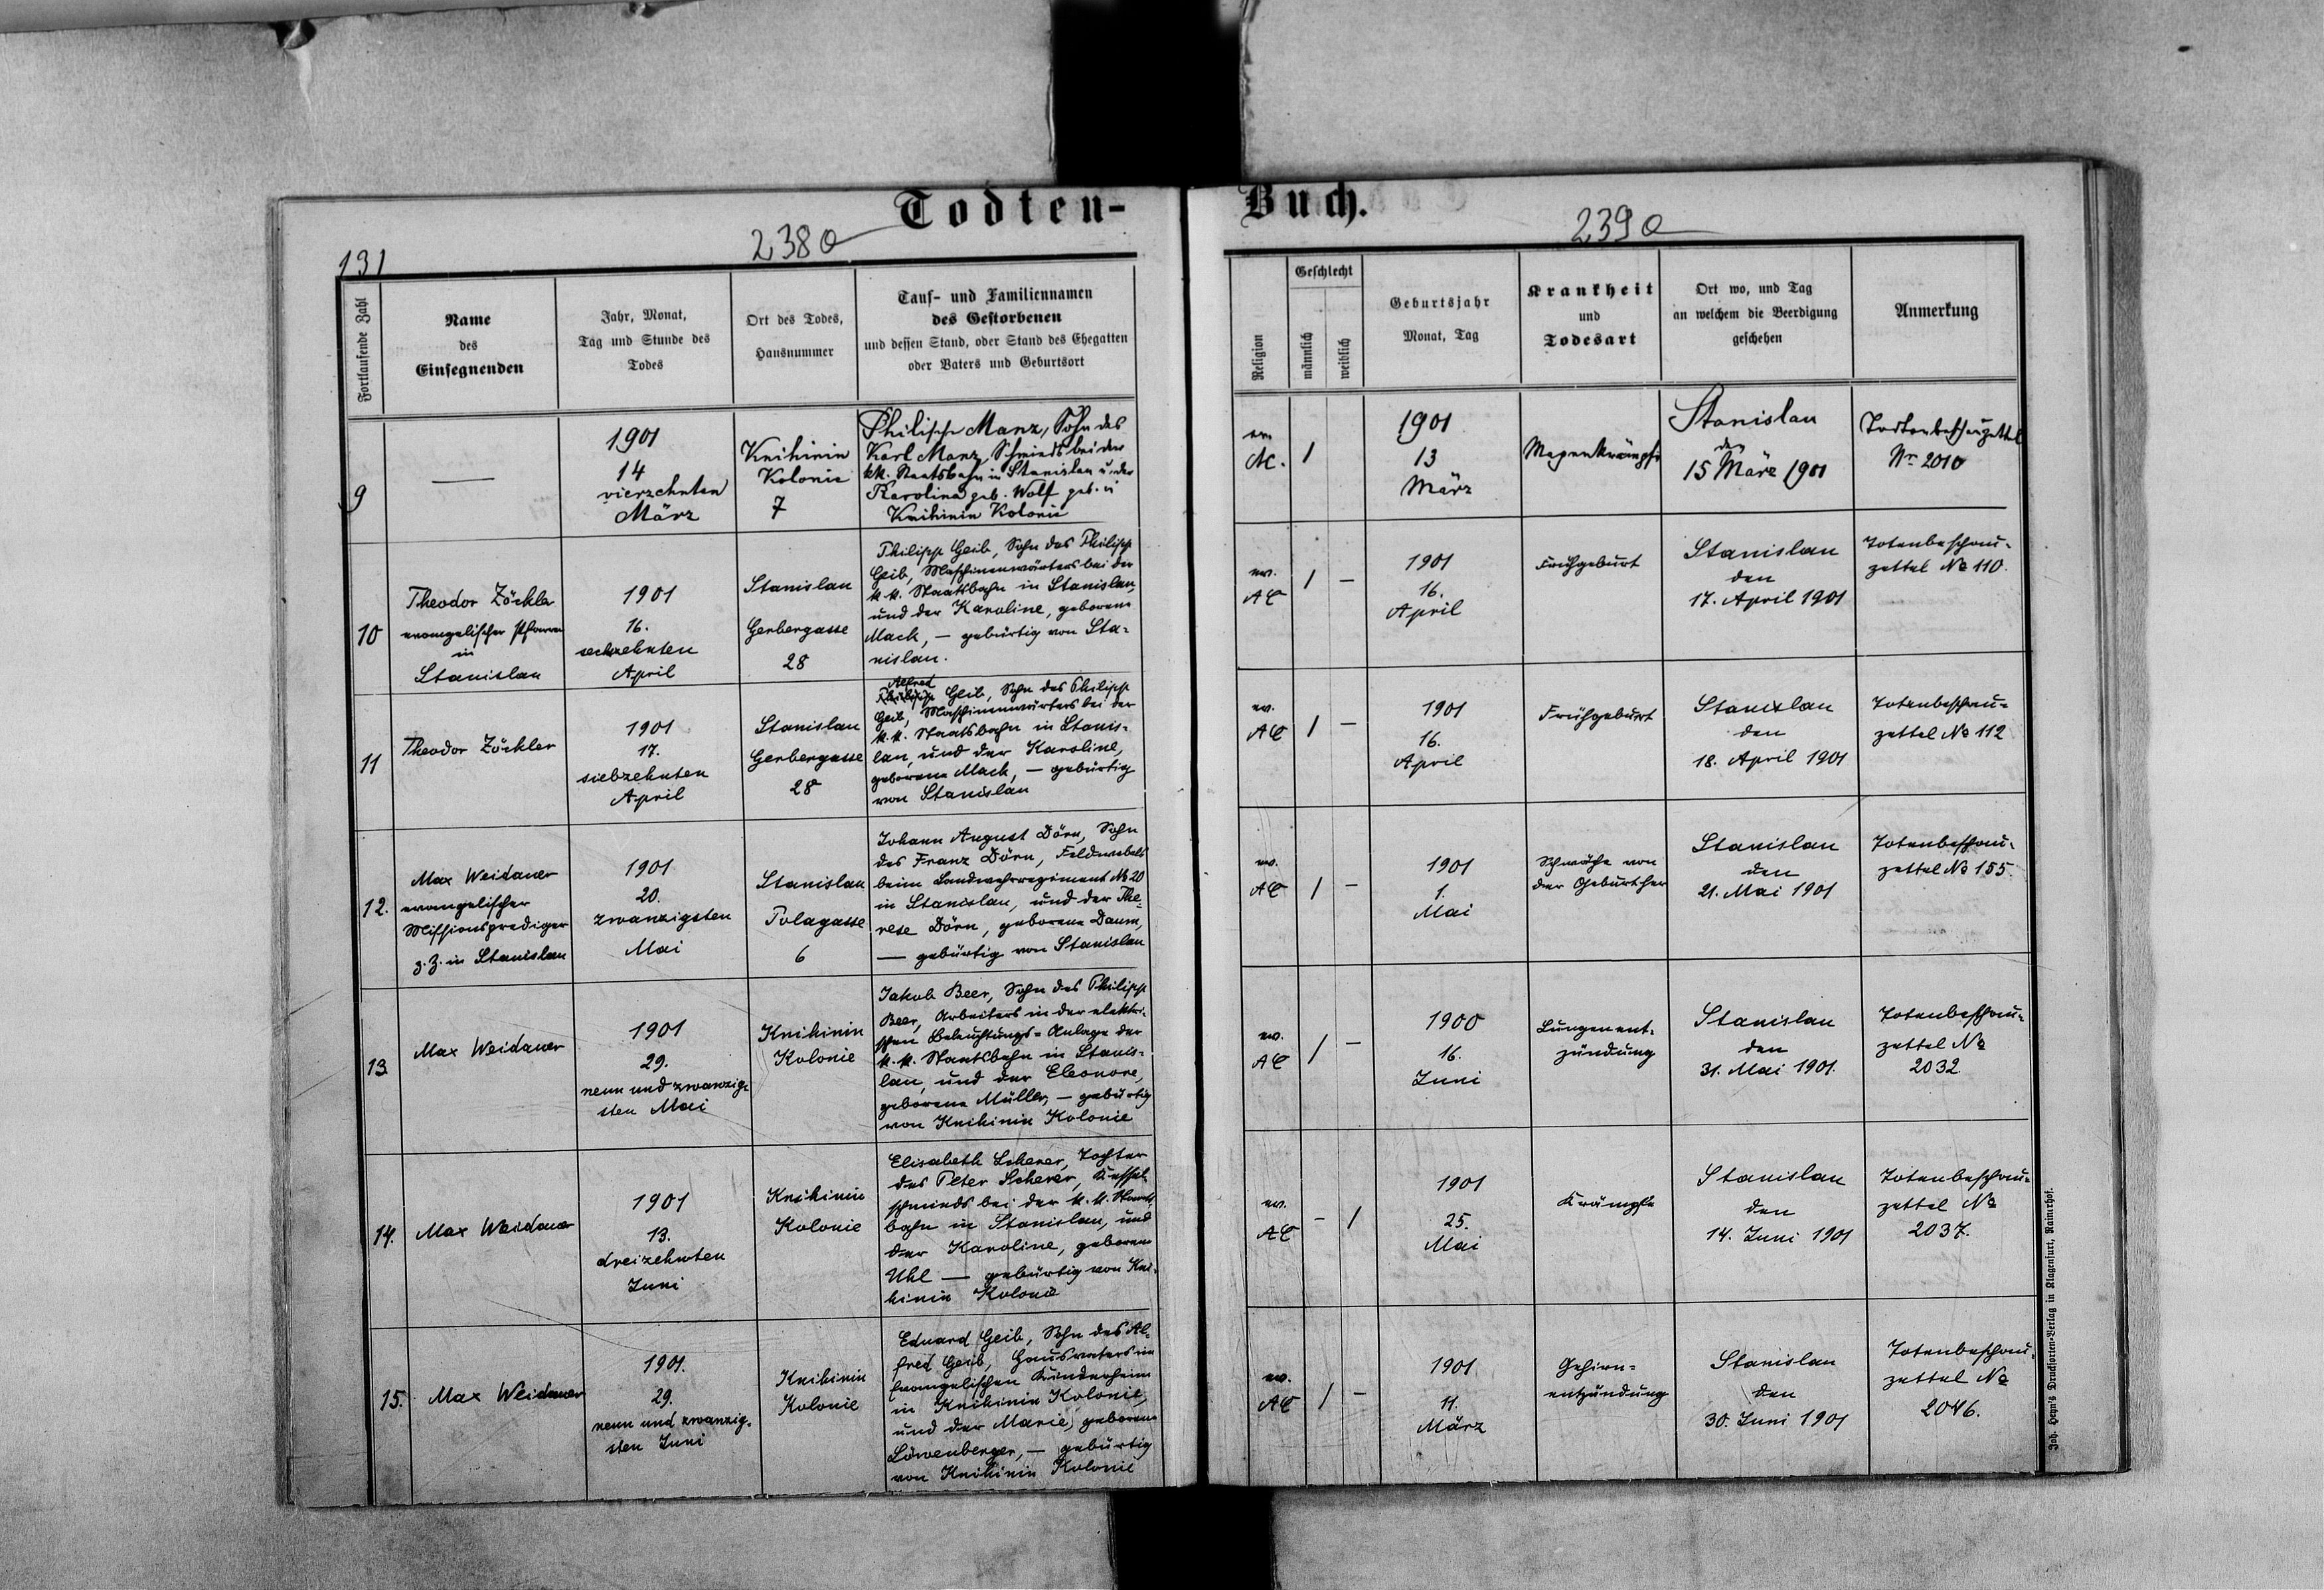 Todten-
Buch.
131
238a
239a
Fortlaufende Zahl
Name
des
Einsegnenden
Jahr, Monat,
Tag und Stunde des
Todes
Ort des Todes,
Hausnummer
Tauf- und Familiennamen
des Gestorbenen
und dessen Stand, oder Stand des Ehegatten
oder Vaters und Geburtsort
Religion
Geschlecht
männlich
weiblich
Geburtsjahr
Monat, Tag
Krankheit
und
Todesart
Ort wo, und Tag
an welchem die Beerdigung
geschehen
Anmerkung
9
—
1901
14
vierzehnten
März
Knihinin
Kolonie
7
Philipp Manz, Sohn des
Karl Manz, Schmieds bei der
kk. Staatsbahn in Stanislau u. der
Karolina geb. Wolf geb. in
Knihinin Kolonie
ev.
AC.
1
1901
13
März
Magenkrämpfe
Stanislau
den
15 März 1901
Todtenbeschauzettel
Nr. 2010
10
Theodor Zöckler
evangelischer Pfarrer
in
Stanislau
1901
16.
sechzehnten
April
Stanislau
Gerbergasse
28
Philipp Geib, Sohn des Philipp
Geib, Maschinenwärters bei der
k. k. Staatsbahn in Stanislau,
und der Karoline, geborene
Mack, — gebürtig von Sta-
nislau.
ev.
AC
1 –
1901
16.
April
Frühgeburt
Stanislau
den
17. April 1901
Totenbeschau-
zettel No 110.
11
Theodor Zöckler
1901
17.
siebzehnten
April
Stanislau
Gerbergasse
28
Alfred
Philipp Geib, Sohn des Philipp
Geib, Maschinenwärters bei der
k. k. Staatsbahn in Stanis-
lau, und der Karoline,
geborene Mack, — gebürtig
von Stanislau
ev.
AC
1 –
1901
16.
April
Frühgeburt
Stanislau
den
18. April 1901
Totenbeschau-
zettel No 112
12.
Max Weidauer
evangelischer
Missionsprediger
z. Z. in Stanislau
1901
20.
zwanzigsten
Mai
Stanislau
Polagasse
6
Johann August Dörn, Sohn
des Franz Dörn, Feldwebels
beim Landwehrregiment No 20
in Stanislau, und der The-
rese Dörn, geborene Daum,
— gebürtig von Stanislau
ev.
AC
1 –
1901
1.
Mai
Schwäche von
der Geburt her
Stanislau
den
21. Mai 1901
Totenbeschau-
zettel No 155.
13.
Max Weidauer
1901
29.
neun und zwanzig-
sten Mai
Knihinin
Kolonie
Jakob Beer, Sohn des Philipp
Beer, Arbeiters in der elektri-
schen Beleuchtungs-Anlage der
k. k. Staatsbahn in Stanis-
lau, und der Eleonore,
geborene Müller, — gebürtig
von Knihinin Kolonie
ev.
AC
1 –
1900
16.
Juni
Lungenent-
zündung
Stanislau
den
31. Mai 1901.
Totenbeschau-
zettel No
2032.
14.
Max Weidauer
1901
13.
dreizehnten
Juni
Knihinin
Kolonie
Elisabeth Scherer, Tochter
des Peter Scherer, Kessel-
schmieds bei der k. k. Staats-
bahn in Stanislau, und
der Karoline, geborene
Uhl — gebürtig von Kni-
hinin Kolonie
ev.
AC
– 1
1901
25.
Mai
Krämpfe
Stanislau
den
14. Juni 1901
Totenbeschau-
zettel No
2037.
15.
Max Weidauer
1901.
29.
neun und zwanzig-
sten Juni
Knihinin
Kolonie
Eduard Geib, Sohn des Al-
fred Geib, Hausvaters im
evangelischen Kinderheim
in Knihinin Kolonie,
und der Marie, geborene
Löwenberger, — gebürtig
von Knihinin Kolonie
ev.
AC
1 –
1901
11.
März
Gehirn-
entzündung
Stanislau
den
30. Juni 1901
Totenbeschau-
zettel No
2046.
Joh. Heyn's Drucksorten-Verlag in Klagenfurt, Rainerhof.